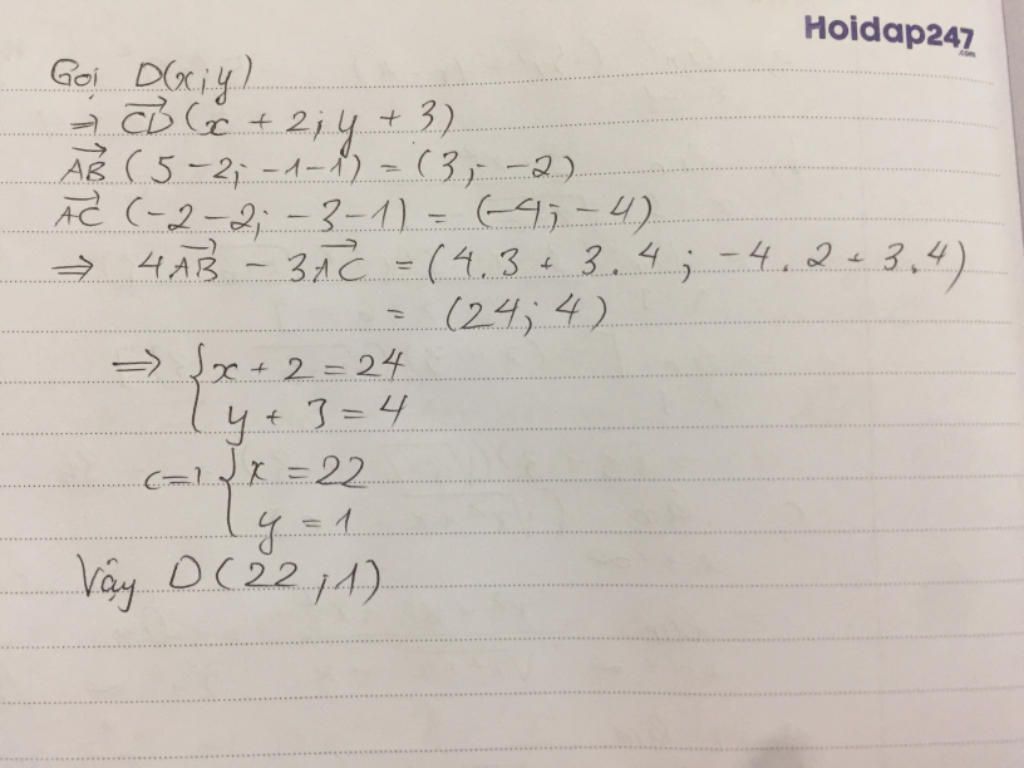 Hoidap247
.com
Gọi D(x;y)
⇒ \overrightarrow{CD} (x + 2; y + 3)
\overrightarrow{AB} (5 - 2; -1 - 1) = (3; -2)
\overrightarrow{AC} (-2 - 2; -3 - 1) = (-4; -4)
⇒ 4\overrightarrow{AB} - 3\overrightarrow{AC} = (4.3 + 3.4; -4.2 + 3.4)
= (24; 4)
⇒ { x + 2 = 24
y + 3 = 4
<=> { x = 22
y = 1
Vậy D(22; 1)